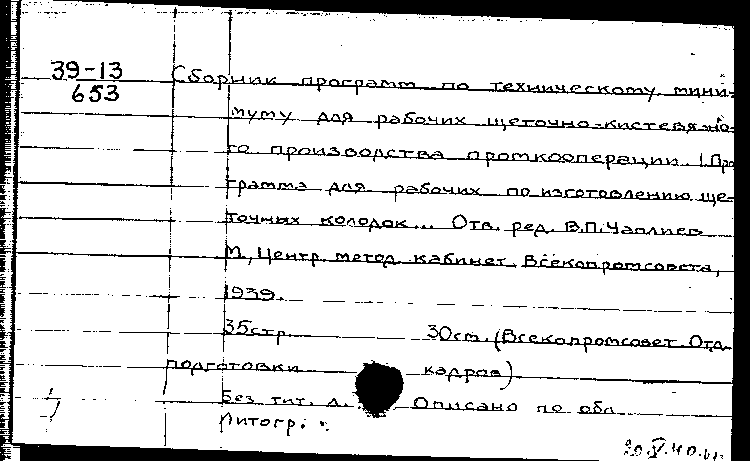 39-13
653
Сборник программ по техническому мини-
муму для рабочих щеточно-кистевязно-
го производства промкооперации. 1. Про
грамма для рабочих по изготовлению ще-
точных колодок... Отв. ред. В.П. Чаплиев
М., Центр. метод. кабинет Всекопромсовета,
1939.
35стр. 30см. (Всекопромсовет. Отд.
подготовки кадров)
Без тит. л. Описано по обл.
Литогр.
20.V.40.